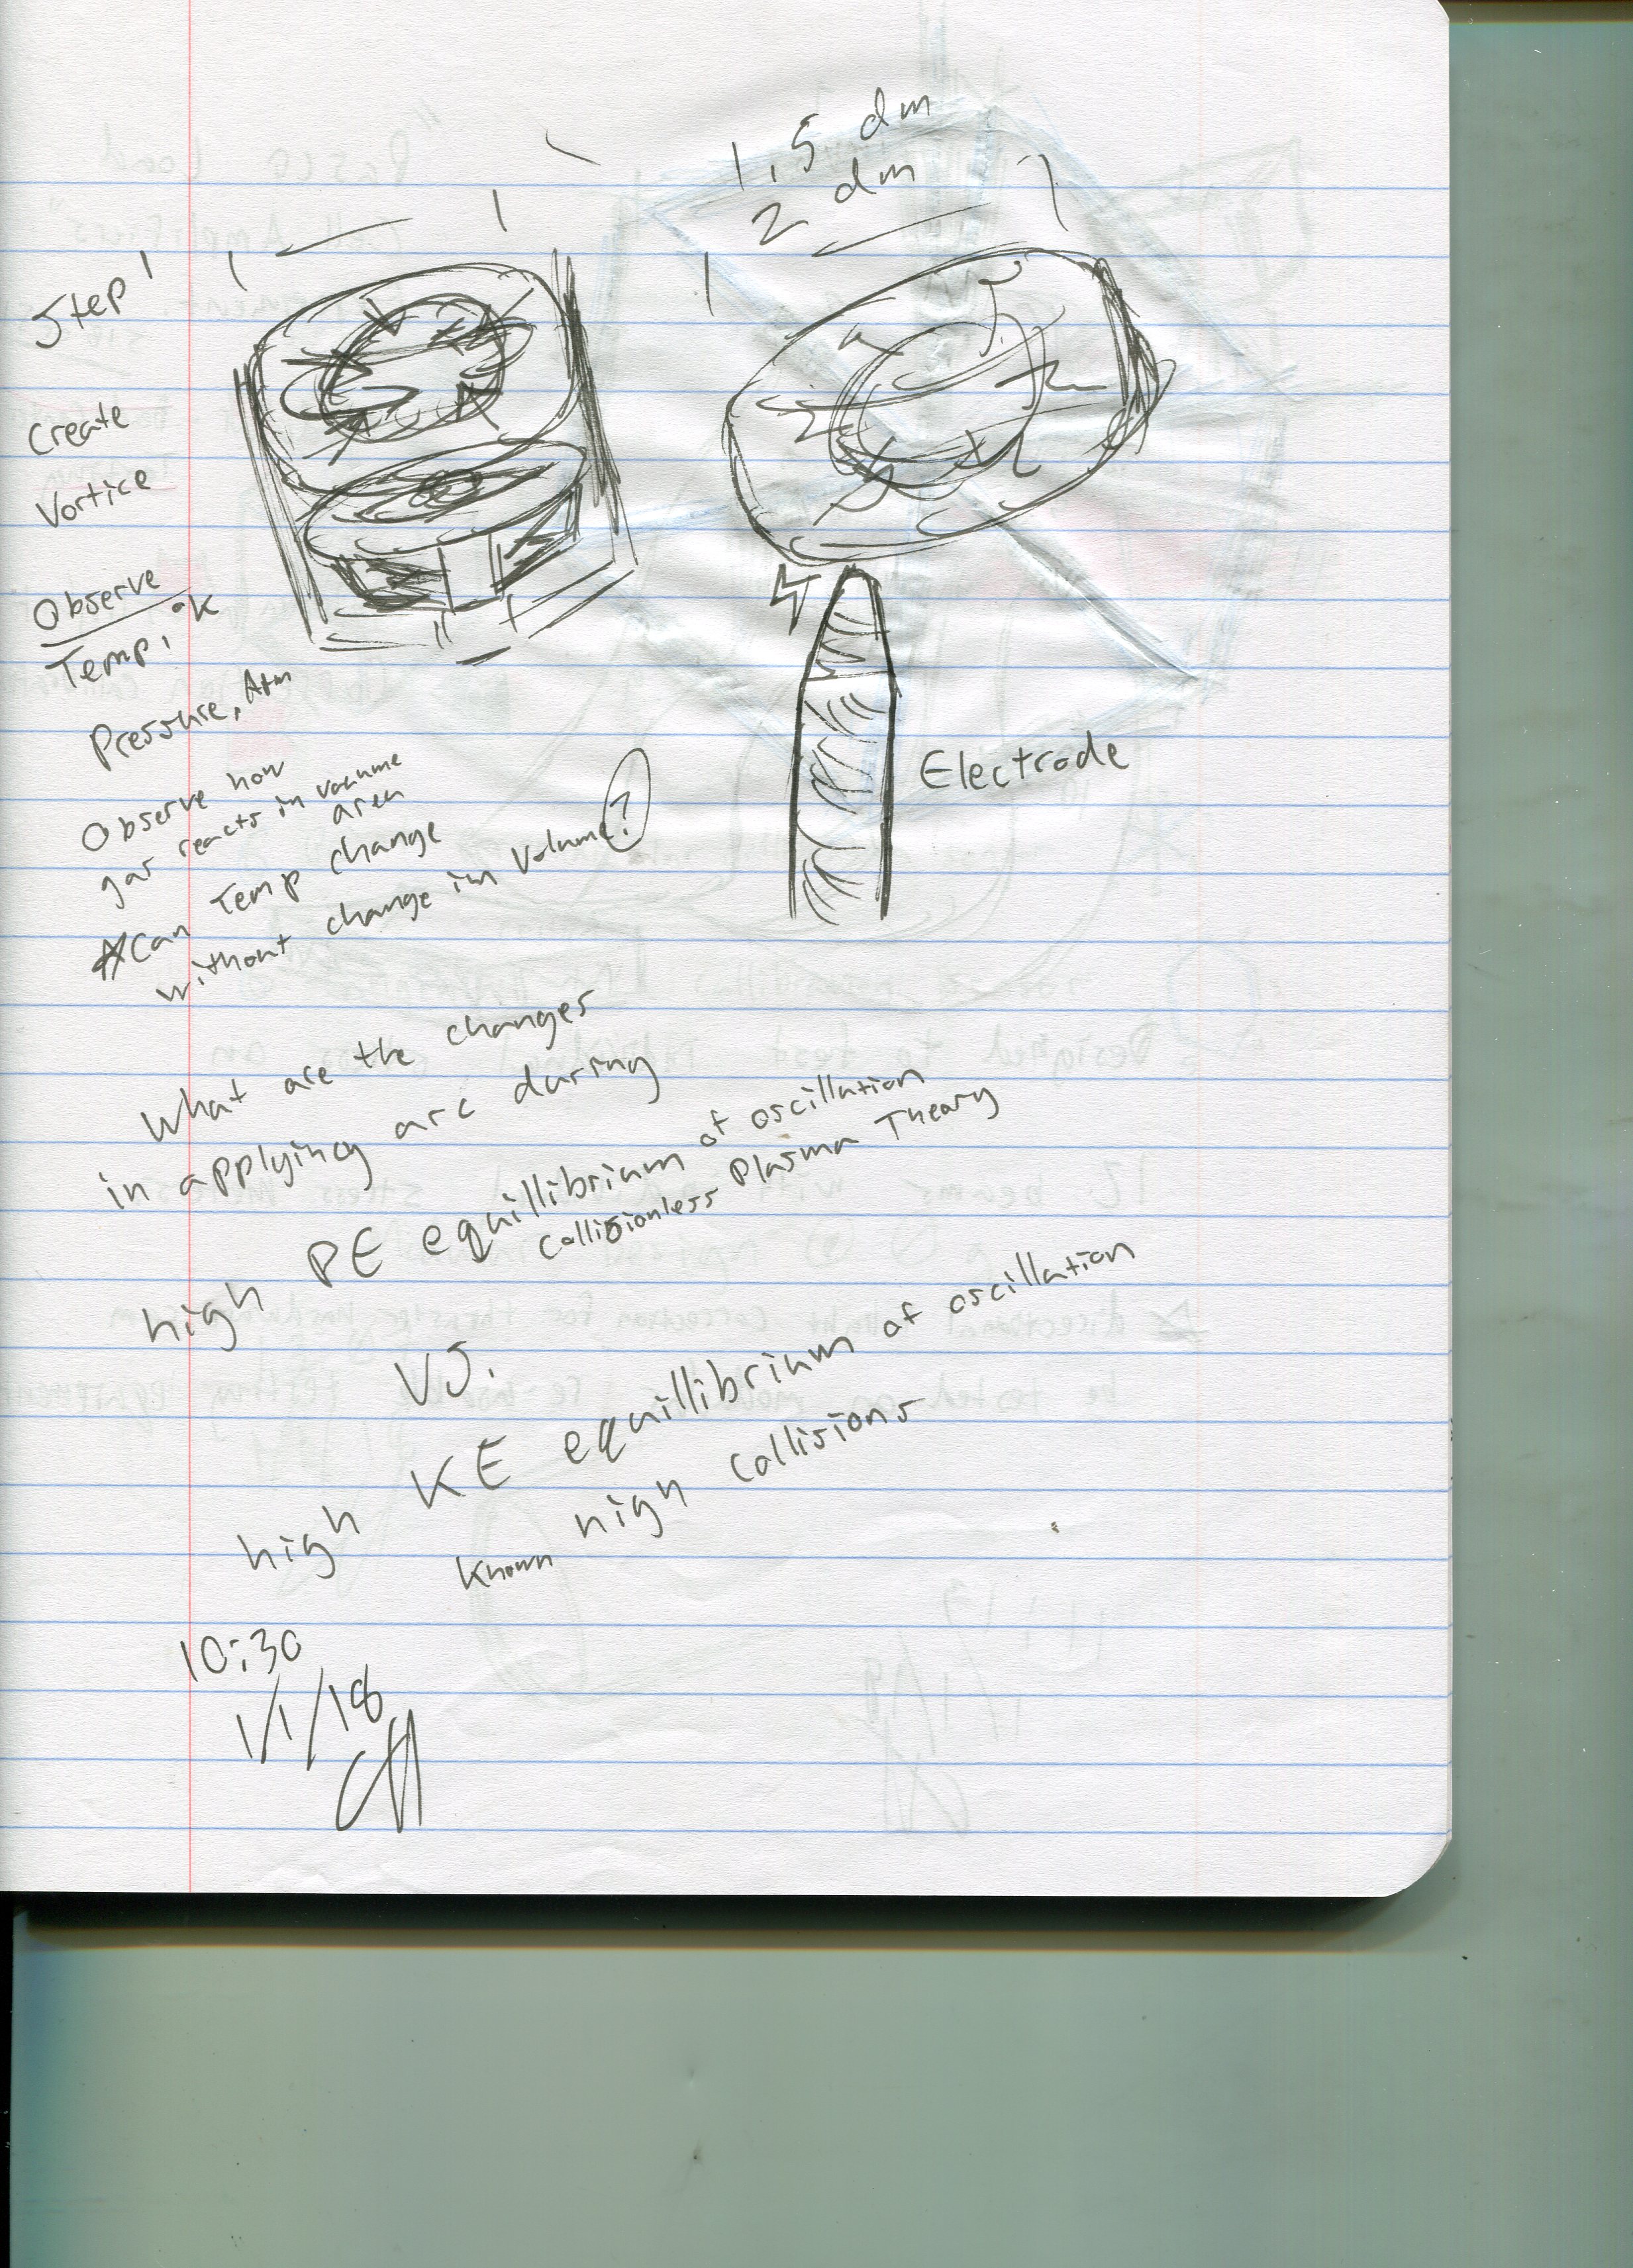 1.5 dm
2 dm
Step 1
Create
Vortice
Observe
Temp, °K
Pressure, Atm
Observe how
gas reacts in vacuume
area
*Can Temp change
without change in volume?
Electrode
What are the changes
in applying arc during
high PE equillibrium of oscillation
collisionless Plasma Theory
VS.
high KE equillibrium of oscillation
known high collisions
10:30
1/1/18